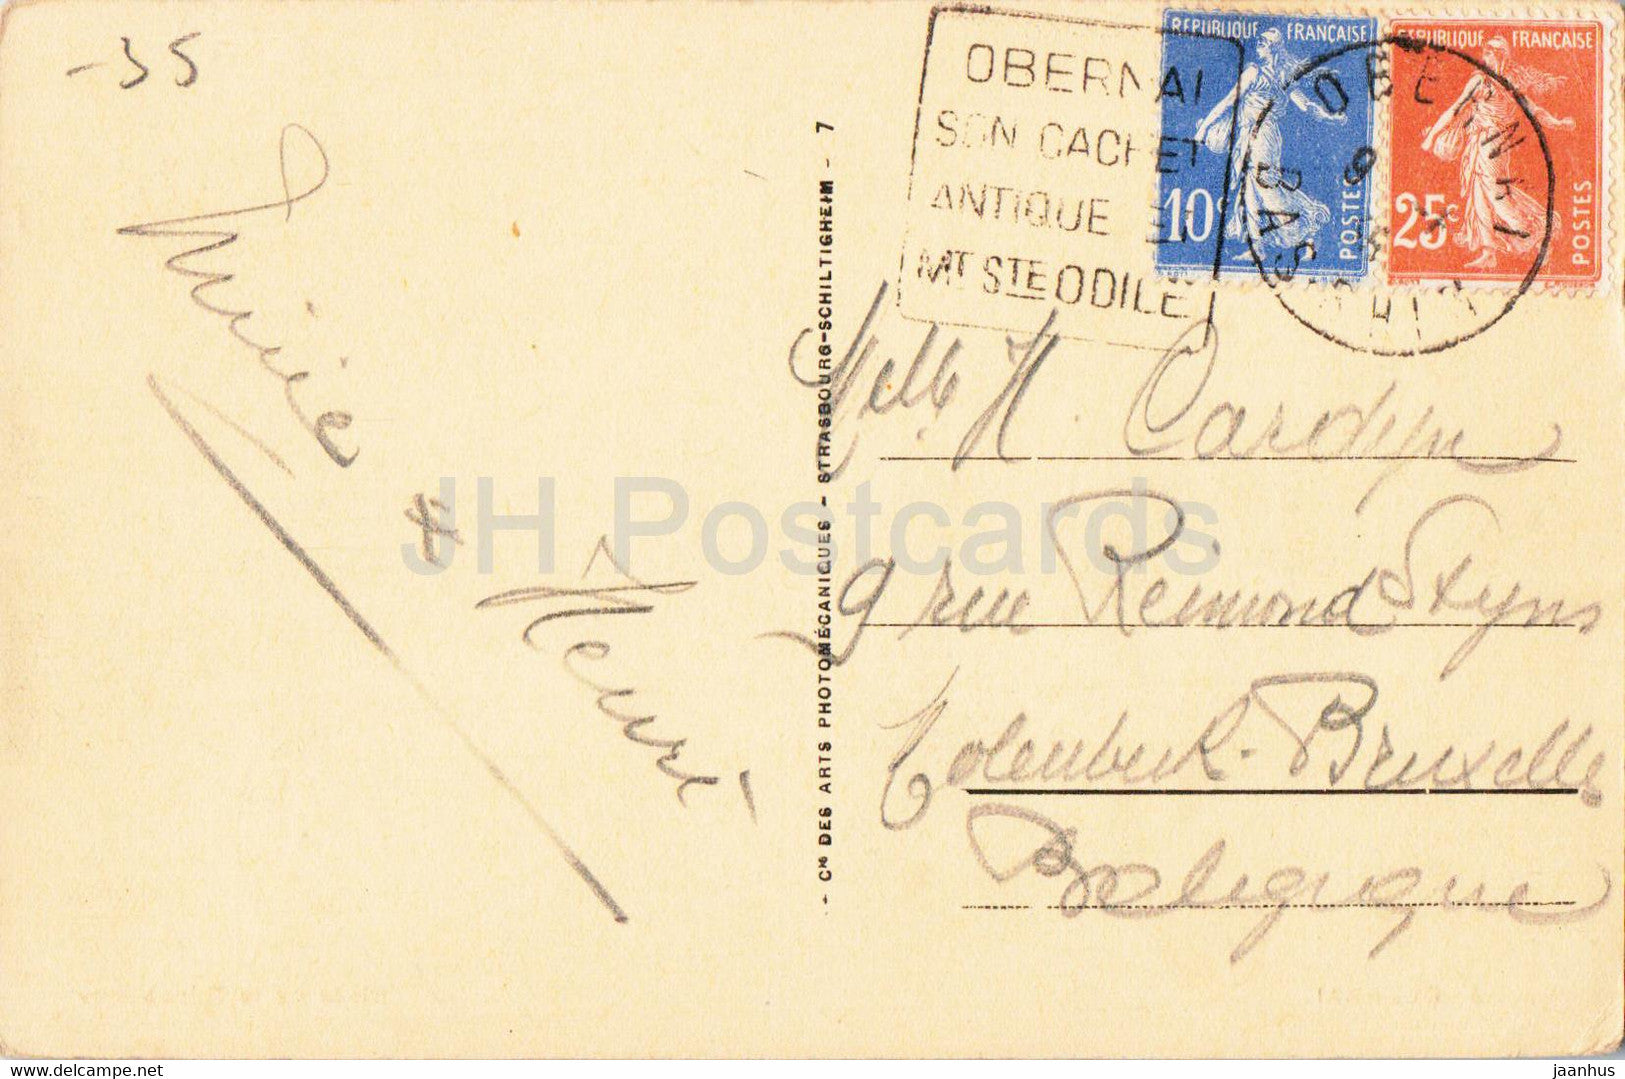 -35
OBERNAI
SON CACHET
ANTIQUE ET
MT STE ODILE
REPUBLIQUE FRANÇAISE
10c
POSTES
REPUBLIQUE FRANÇAISE
25c
POSTES
OBERNAI
9
BAS RHIN
& Henri
- Cie DES ARTS PHOTOMÉCANIQUES - STRASBOURG-SCHILTIGHEIM - 7
Melle H. Cardyn
9 rue Remond Styns
Molenbeek-Bruxelles
Belgique
JH Postcards
delcampe.net
jaanhus